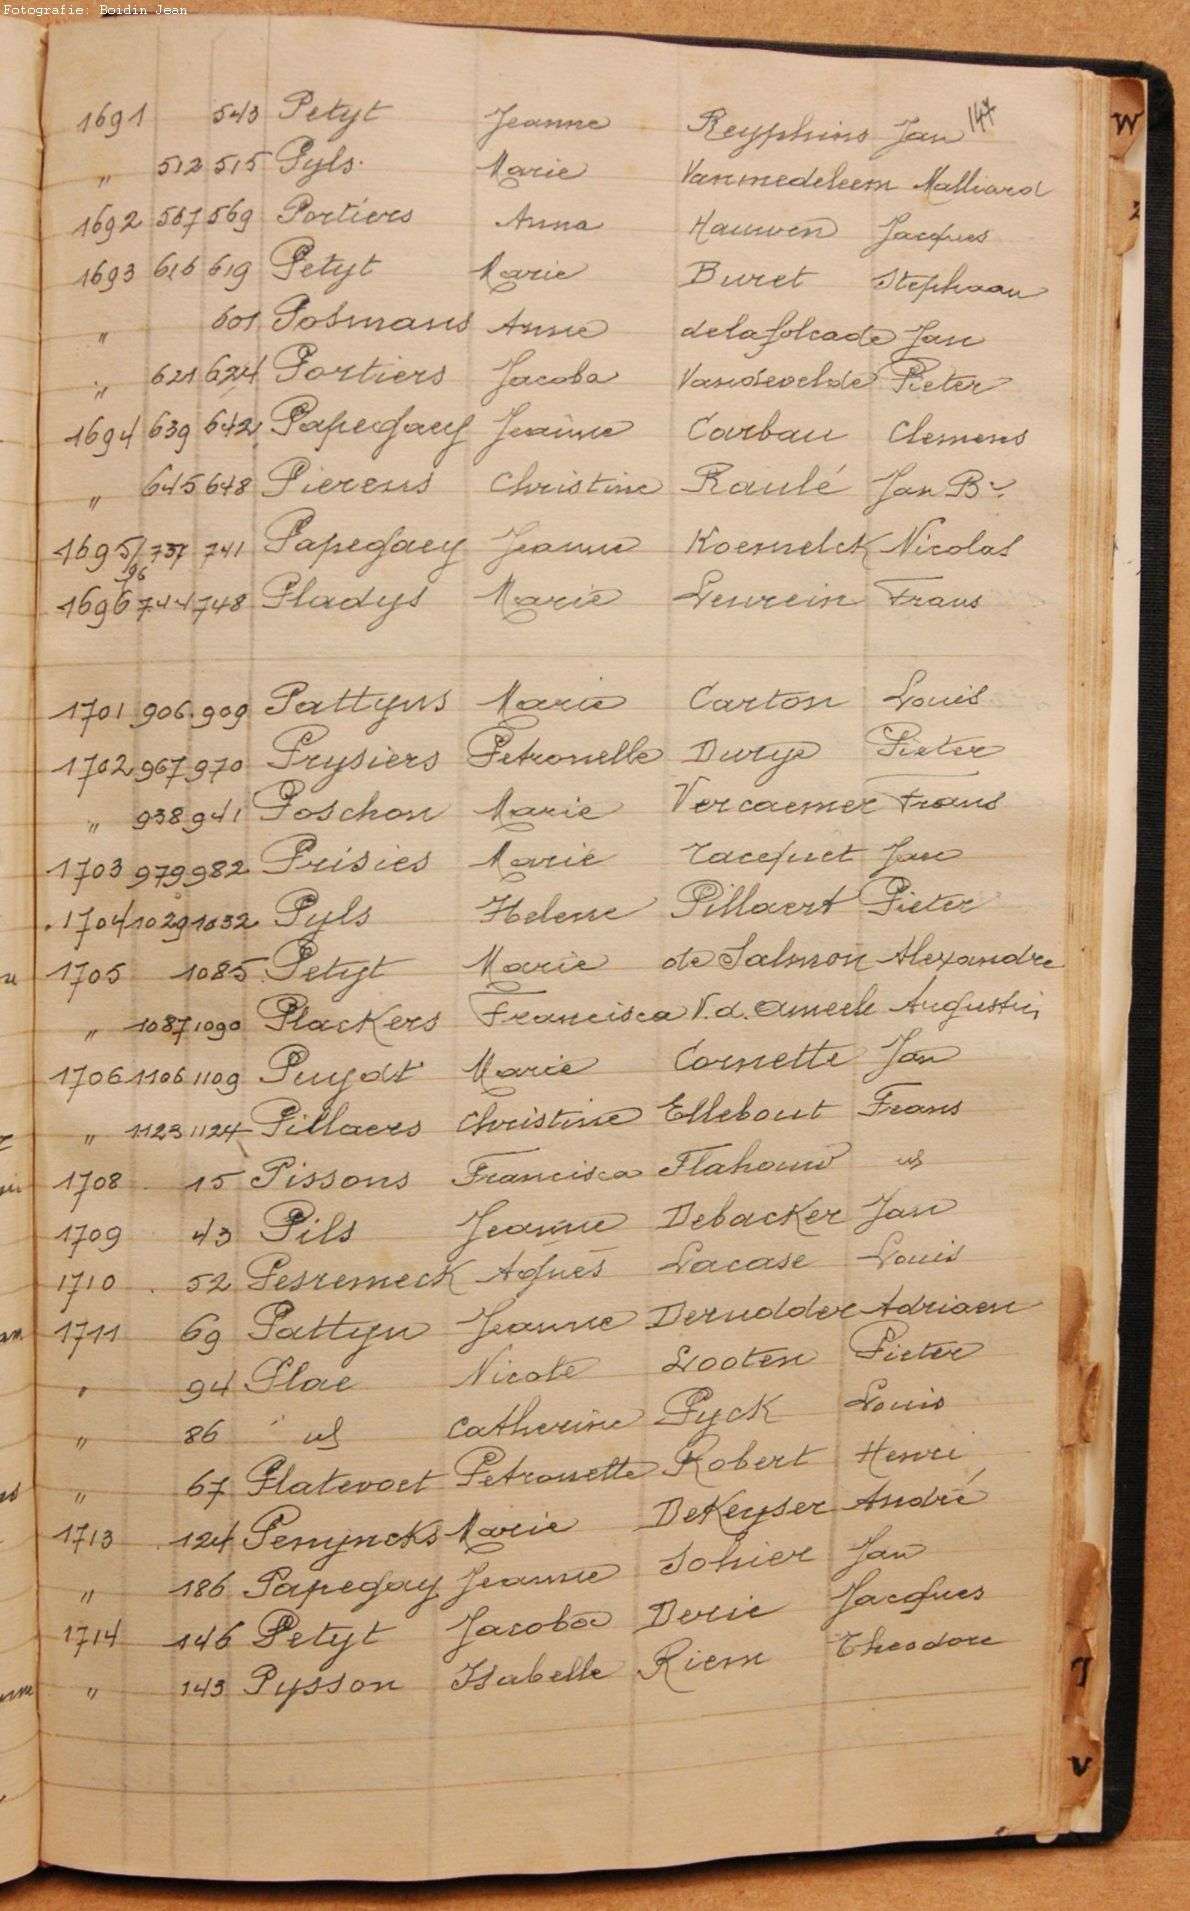 Fotografie: Boidin Jean
147
1691 543 Petyt Jeanne Reyphins Jan
" 512 515 Pyls. Marie Vanmedeleem Malliard
1692 567 569 Portiers Anna Hauwen Jacques
1693 616 619 Petyt Marie Buret Stephaan
" 601 Posmans Anne delafolcade Jan
" 621 624 Portiers Jacoba Vandevelde Pieter
1694 639 642 Papegaey Jeanne Carbau Clemens
" 645 648 Pierens Christine Raulé Jan Bte
1695/96 737 741 Papegaey Jeanne Koemelck Nicolas
1696 744 748 Pladys Marie Leurein Frans
1701 906 909 Pattyns Marie Carton Louis
1702 967 970 Prysiers Petronelle Durye Pieter
" 938 941 Poschon Marie Vercaemer Frans
1703 979 982 Prisies Marie Tacquet Jan
1704 1029 1032 Pyls Helene Pillaert Pieter
1705 1085 Petyt Marie de Salmon Alexandre
" 1087 1090 Plackers Francisca V.d. Ameele Augustin
1706 1106 1109 Puydt Marie Cornette Jan
" 1123 1124 Pillaers Christine Ellebout Frans
1708 15 Pissons Francisca Flahouw id
1709 43 Pils Jeanne Debacker Jan
1710 52 Pesremeck Agnes Lacase Louis
1711 69 Pattyn Jeanne Derudder Adriaen
" 94 Plae Nicole Looten Pieter
" 86 " id Catherine Pyck Louis
" 67 Platevoet Petronelle Robert Henri
1713 124 Penyncks Marie DeKeyser André
" 186 Papegay Jeanne Sohier Jan
1714 146 Petyt Jacoba Deric Jacques
" 143 Pysson Isabelle Riem Theodore
W
2
T
V